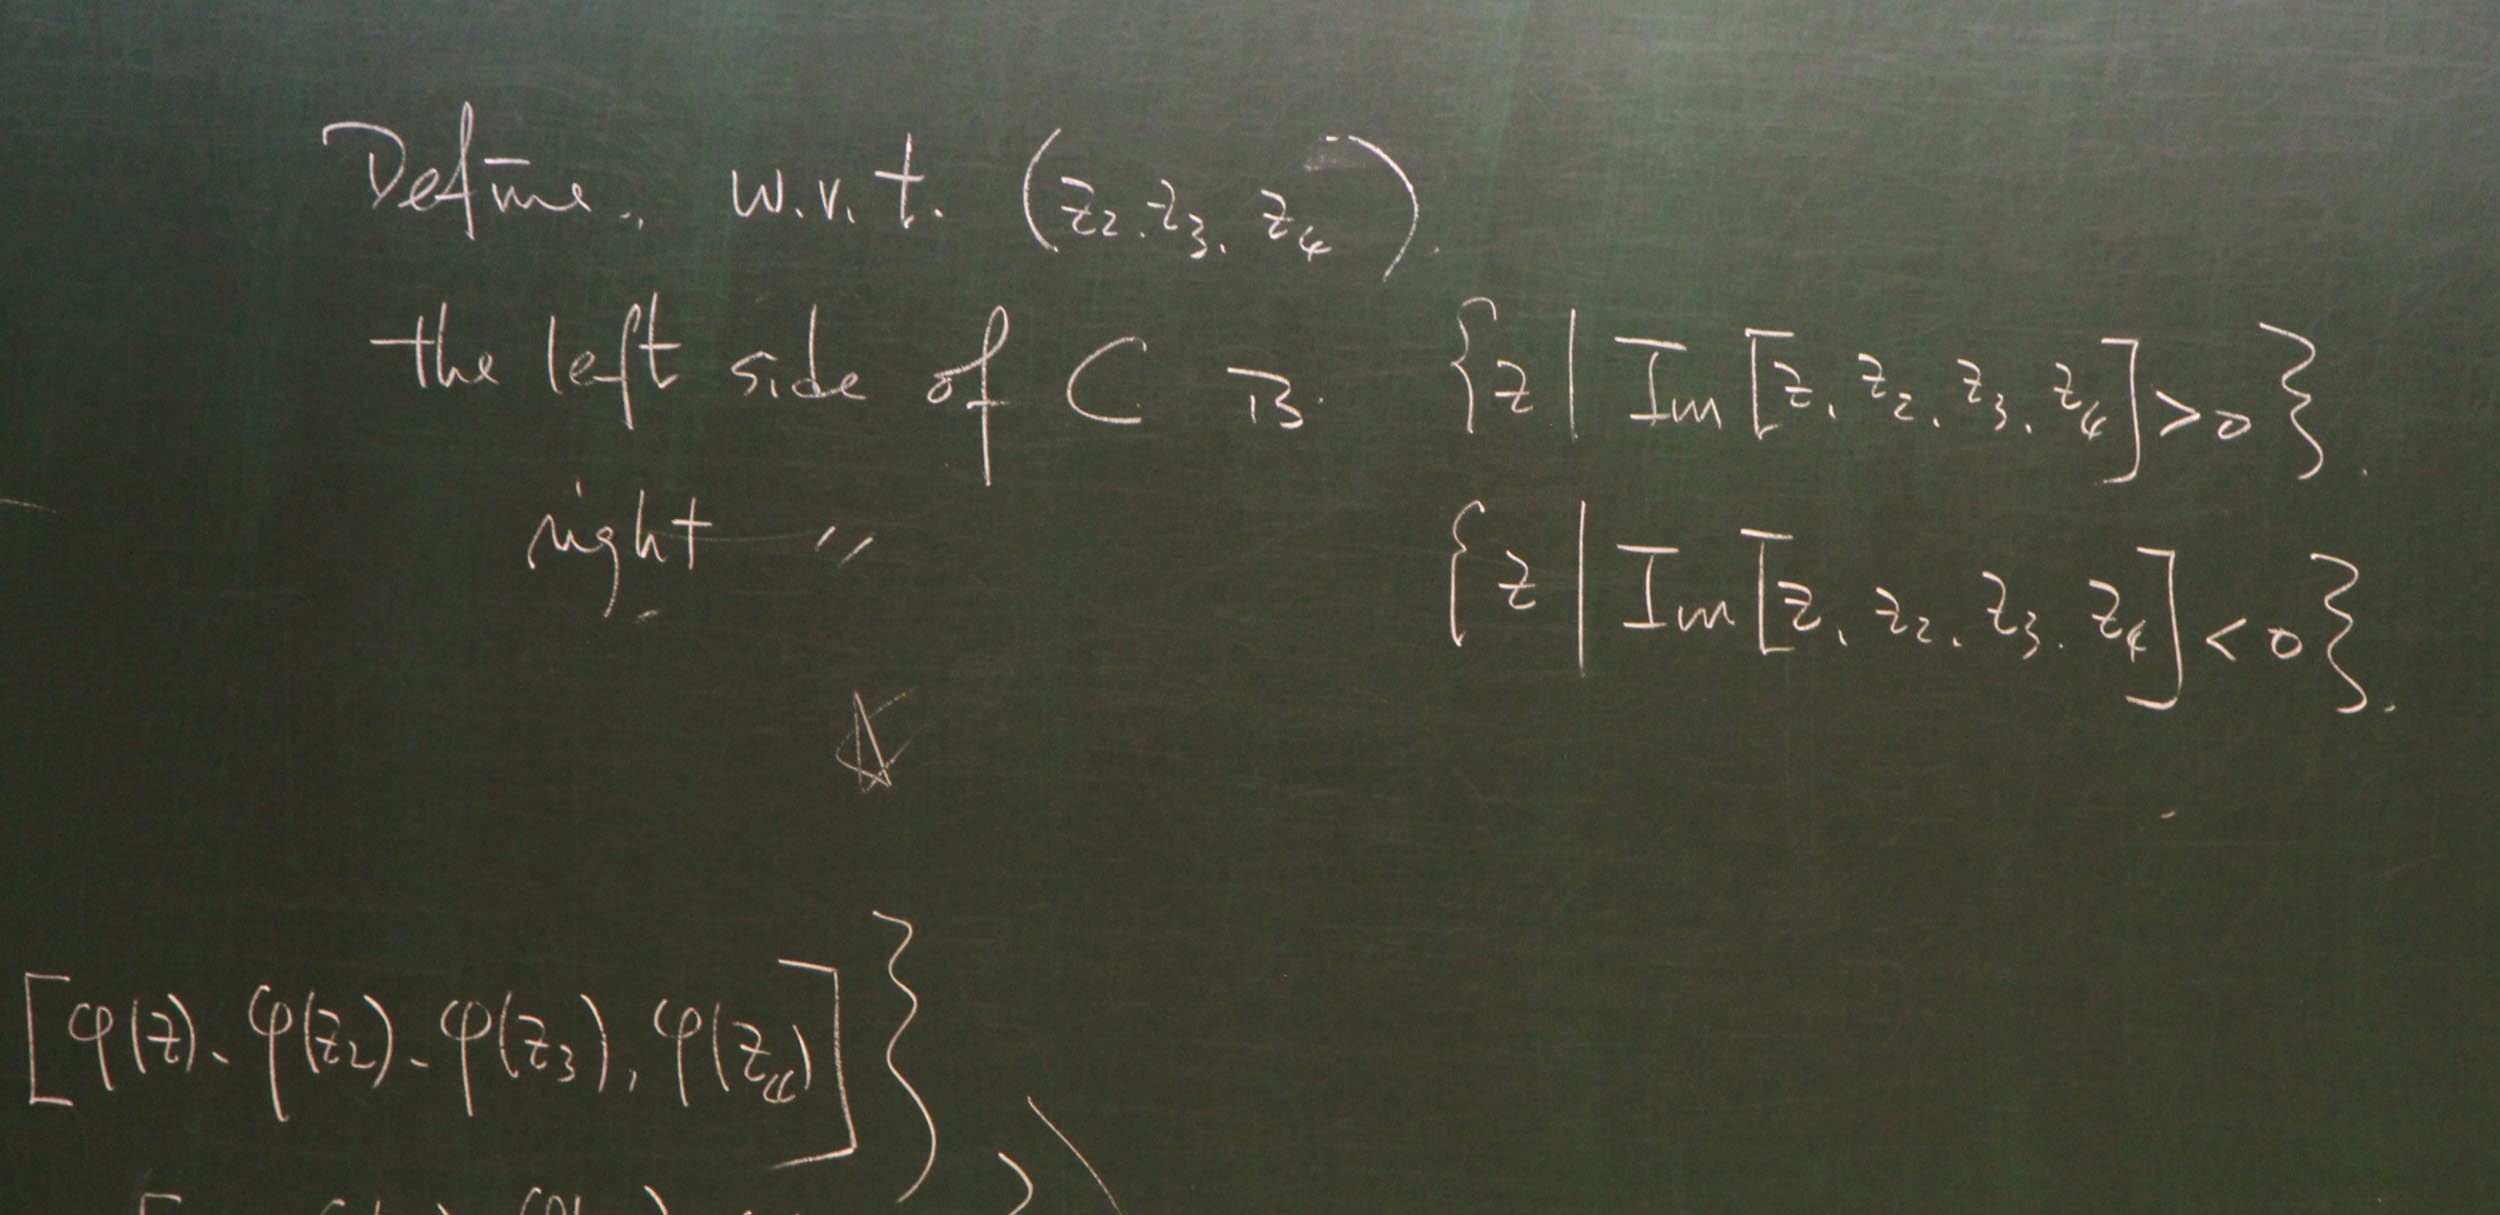 Define, w.r.t. (z₂, z₃, z₄).
the left side of C is {z | Im[z, z₂, z₃, z₄] > 0}.
right 〃 {z | Im[z, z₂, z₃, z₄] < 0}.
[φ(z), φ(z₂), φ(z₃), φ(z₄)]}